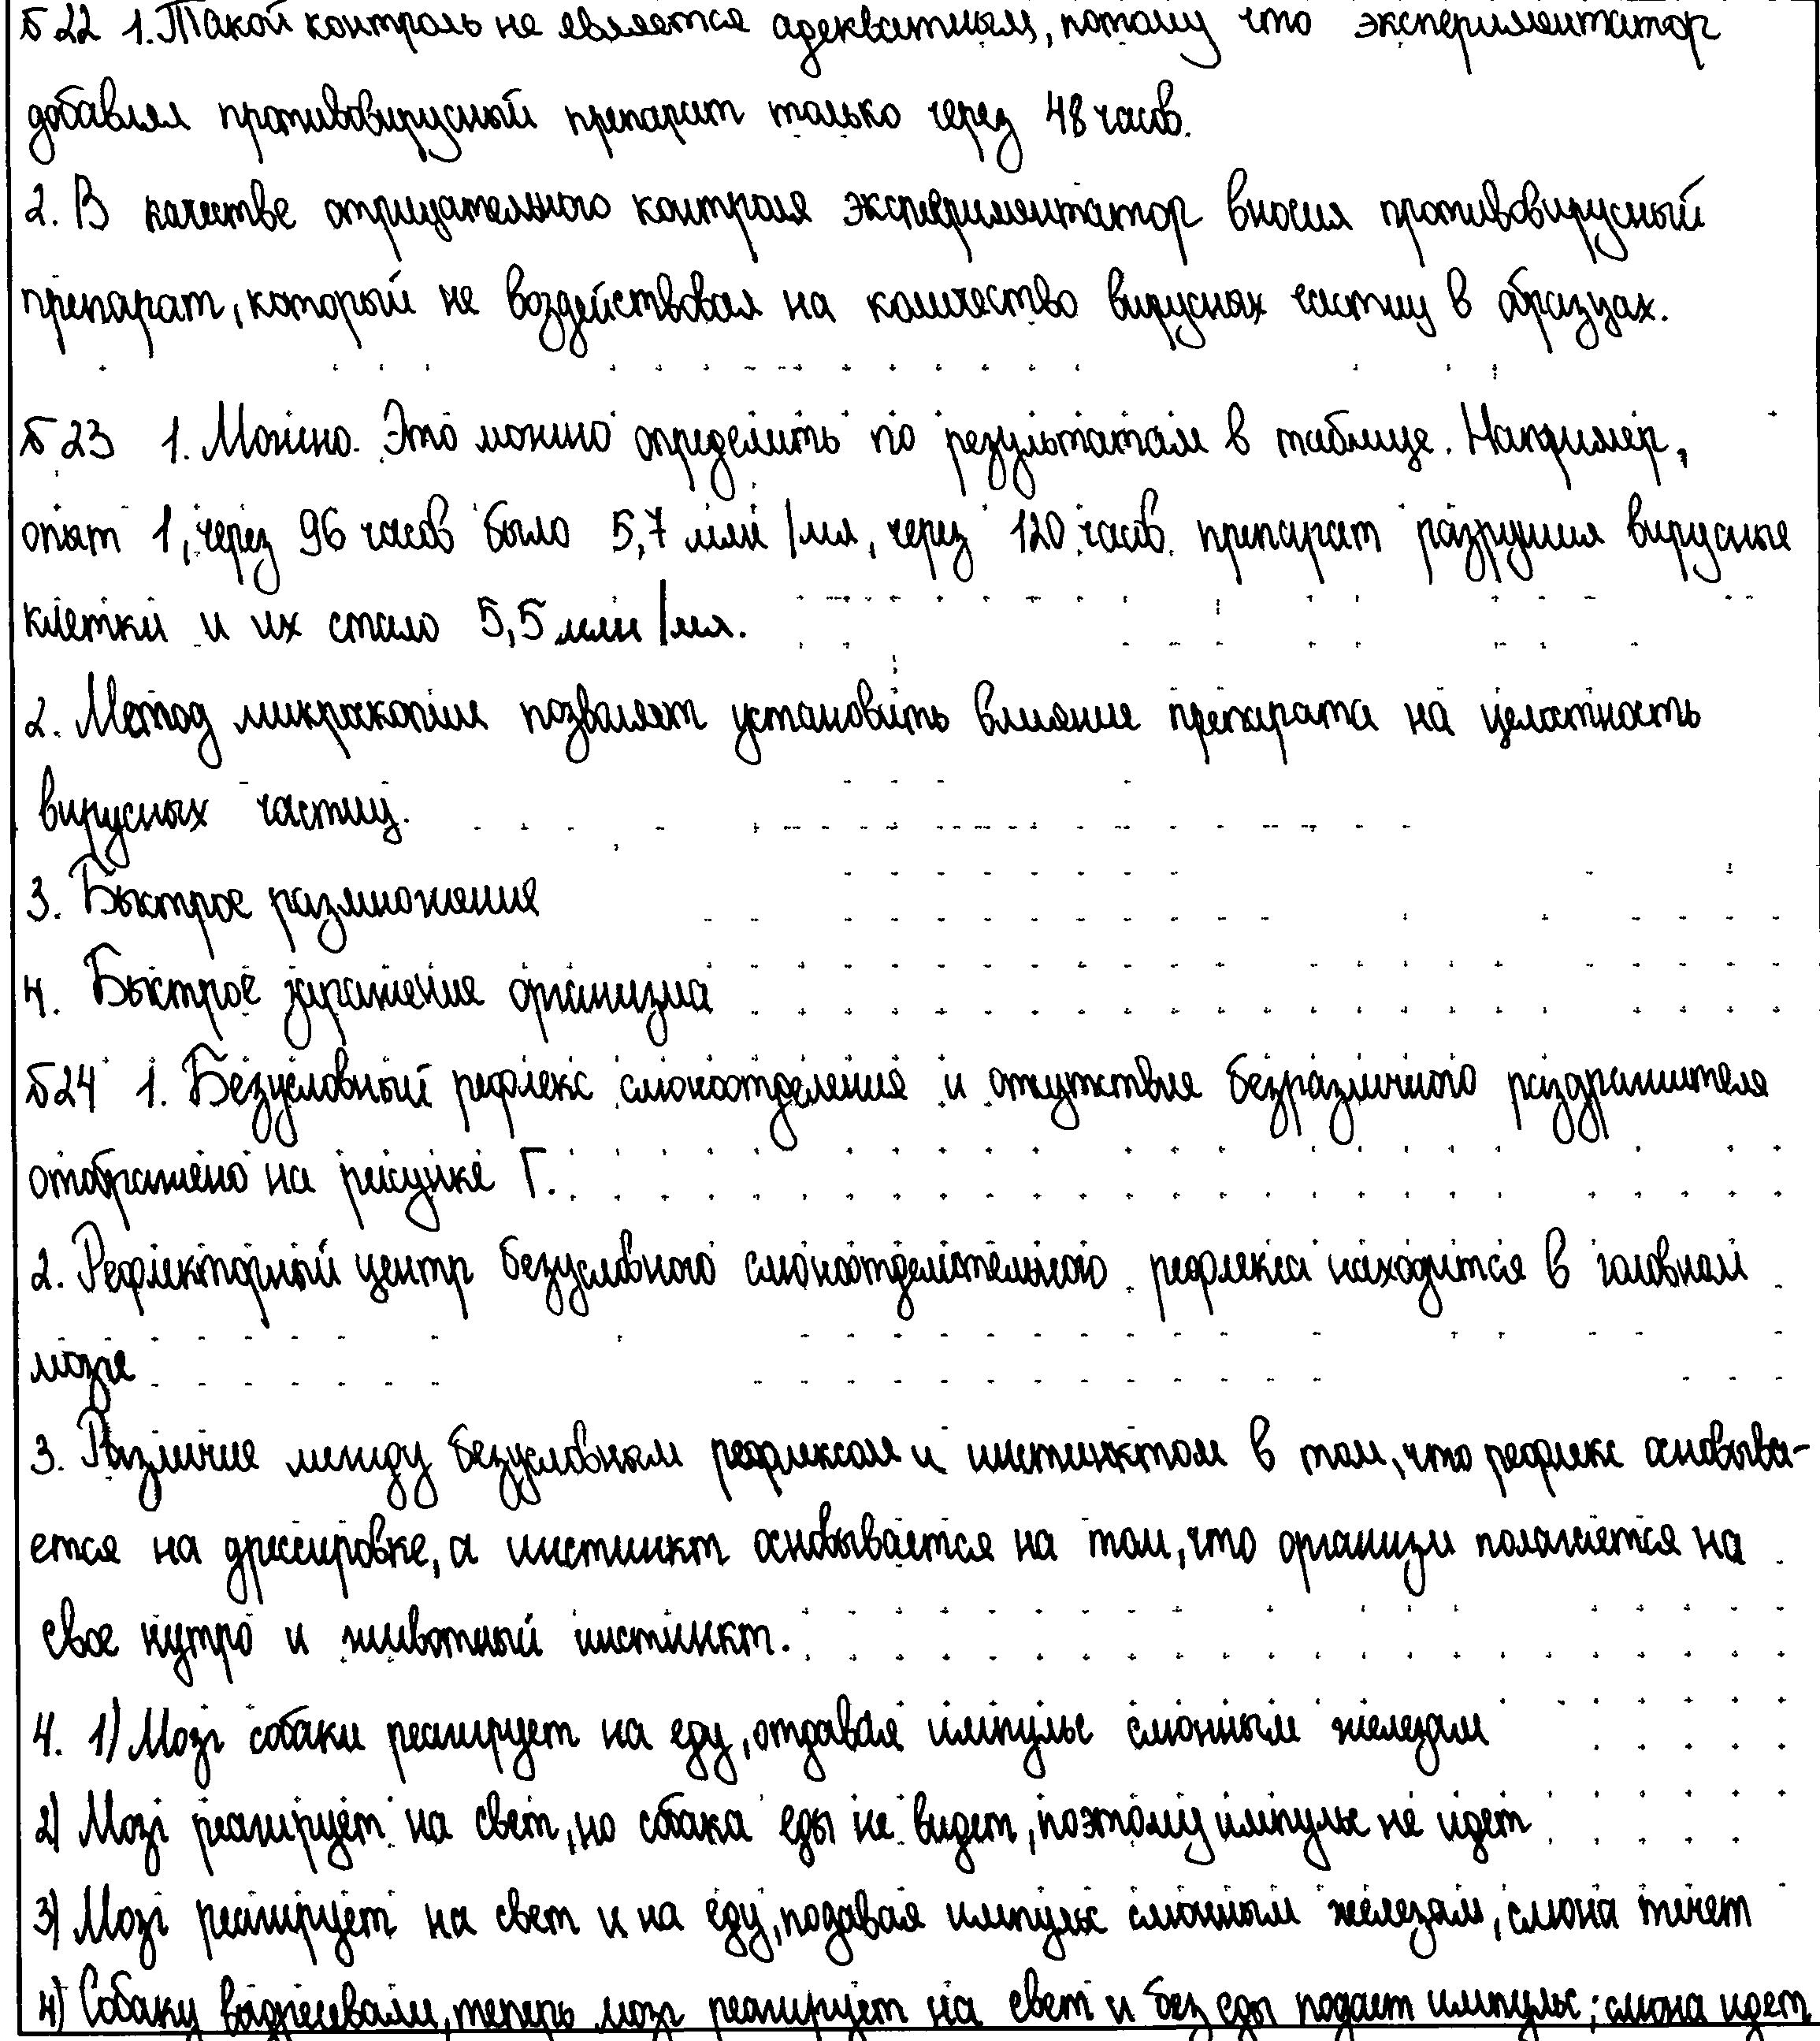 №22 1. Такой контроль не является адекватным, потому что экспериментатор
добавлял противовирусный препарат только через 48 часов.
2. В качестве отрицательного контроля экспериментатор вносил противовирусный
препарат, который не воздействовал на количество вирусных частиц в образцах.
№23 1. Можно. Это можно определить по результатам в таблице. Например,
опыт 1, через 96 часов было 5,7 млн/мл, через 120 часов препарат разрушил вирусные
клетки и их стало 5,5 млн/мл.
2. Метод микроскопии позволяет установить влияние препарата на целостность
вирусных частиц.
3. Быстрое размножение
4. Быстрое заражение организма
№24 1. Безусловный рефлекс слюноотделения и отсутствие безразличного раздражителя
отображено на рисунке Г.
2. Рефлекторный центр безусловного слюноотделительного рефлекса находится в головном
мозге
3. Различие между безусловным рефлексом и инстинктом в том, что рефлекс основыва-
ется на дрессировке, а инстинкт основывается на том, что организм полагается на
свое нутро и животный инстинкт.
4. 1) Мозг собаки реагирует на еду, отдавая импульс слюнным железам
2) Мозг реагирует на свет, но собака еды не видет, поэтому импульс не идет
3) Мозг реагирует на свет и на еду, подавая импульс слюнным железам, слюна течет
4) Собаку выдресевали, теперь мозг реагирует на свет и без еды подает импульс; слюна идет